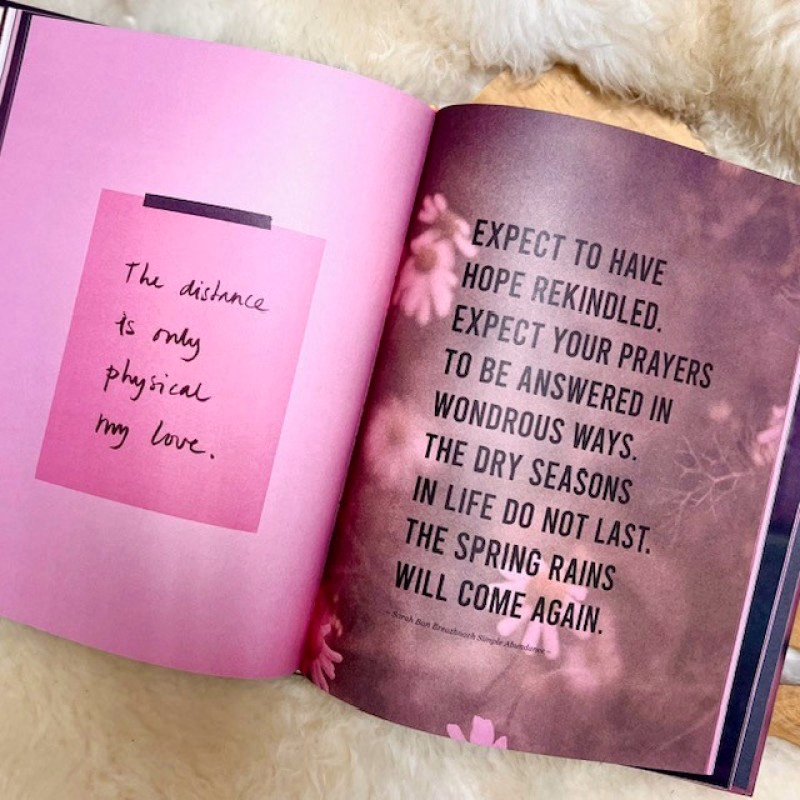 The distance
is only
physical
my love.
EXPECT TO HAVE
HOPE REKINDLED.
EXPECT YOUR PRAYERS
TO BE ANSWERED IN
WONDROUS WAYS.
THE DRY SEASONS
IN LIFE DO NOT LAST.
THE SPRING RAINS
WILL COME AGAIN.
- Sarah Ban Breathnach Simple Abundance -